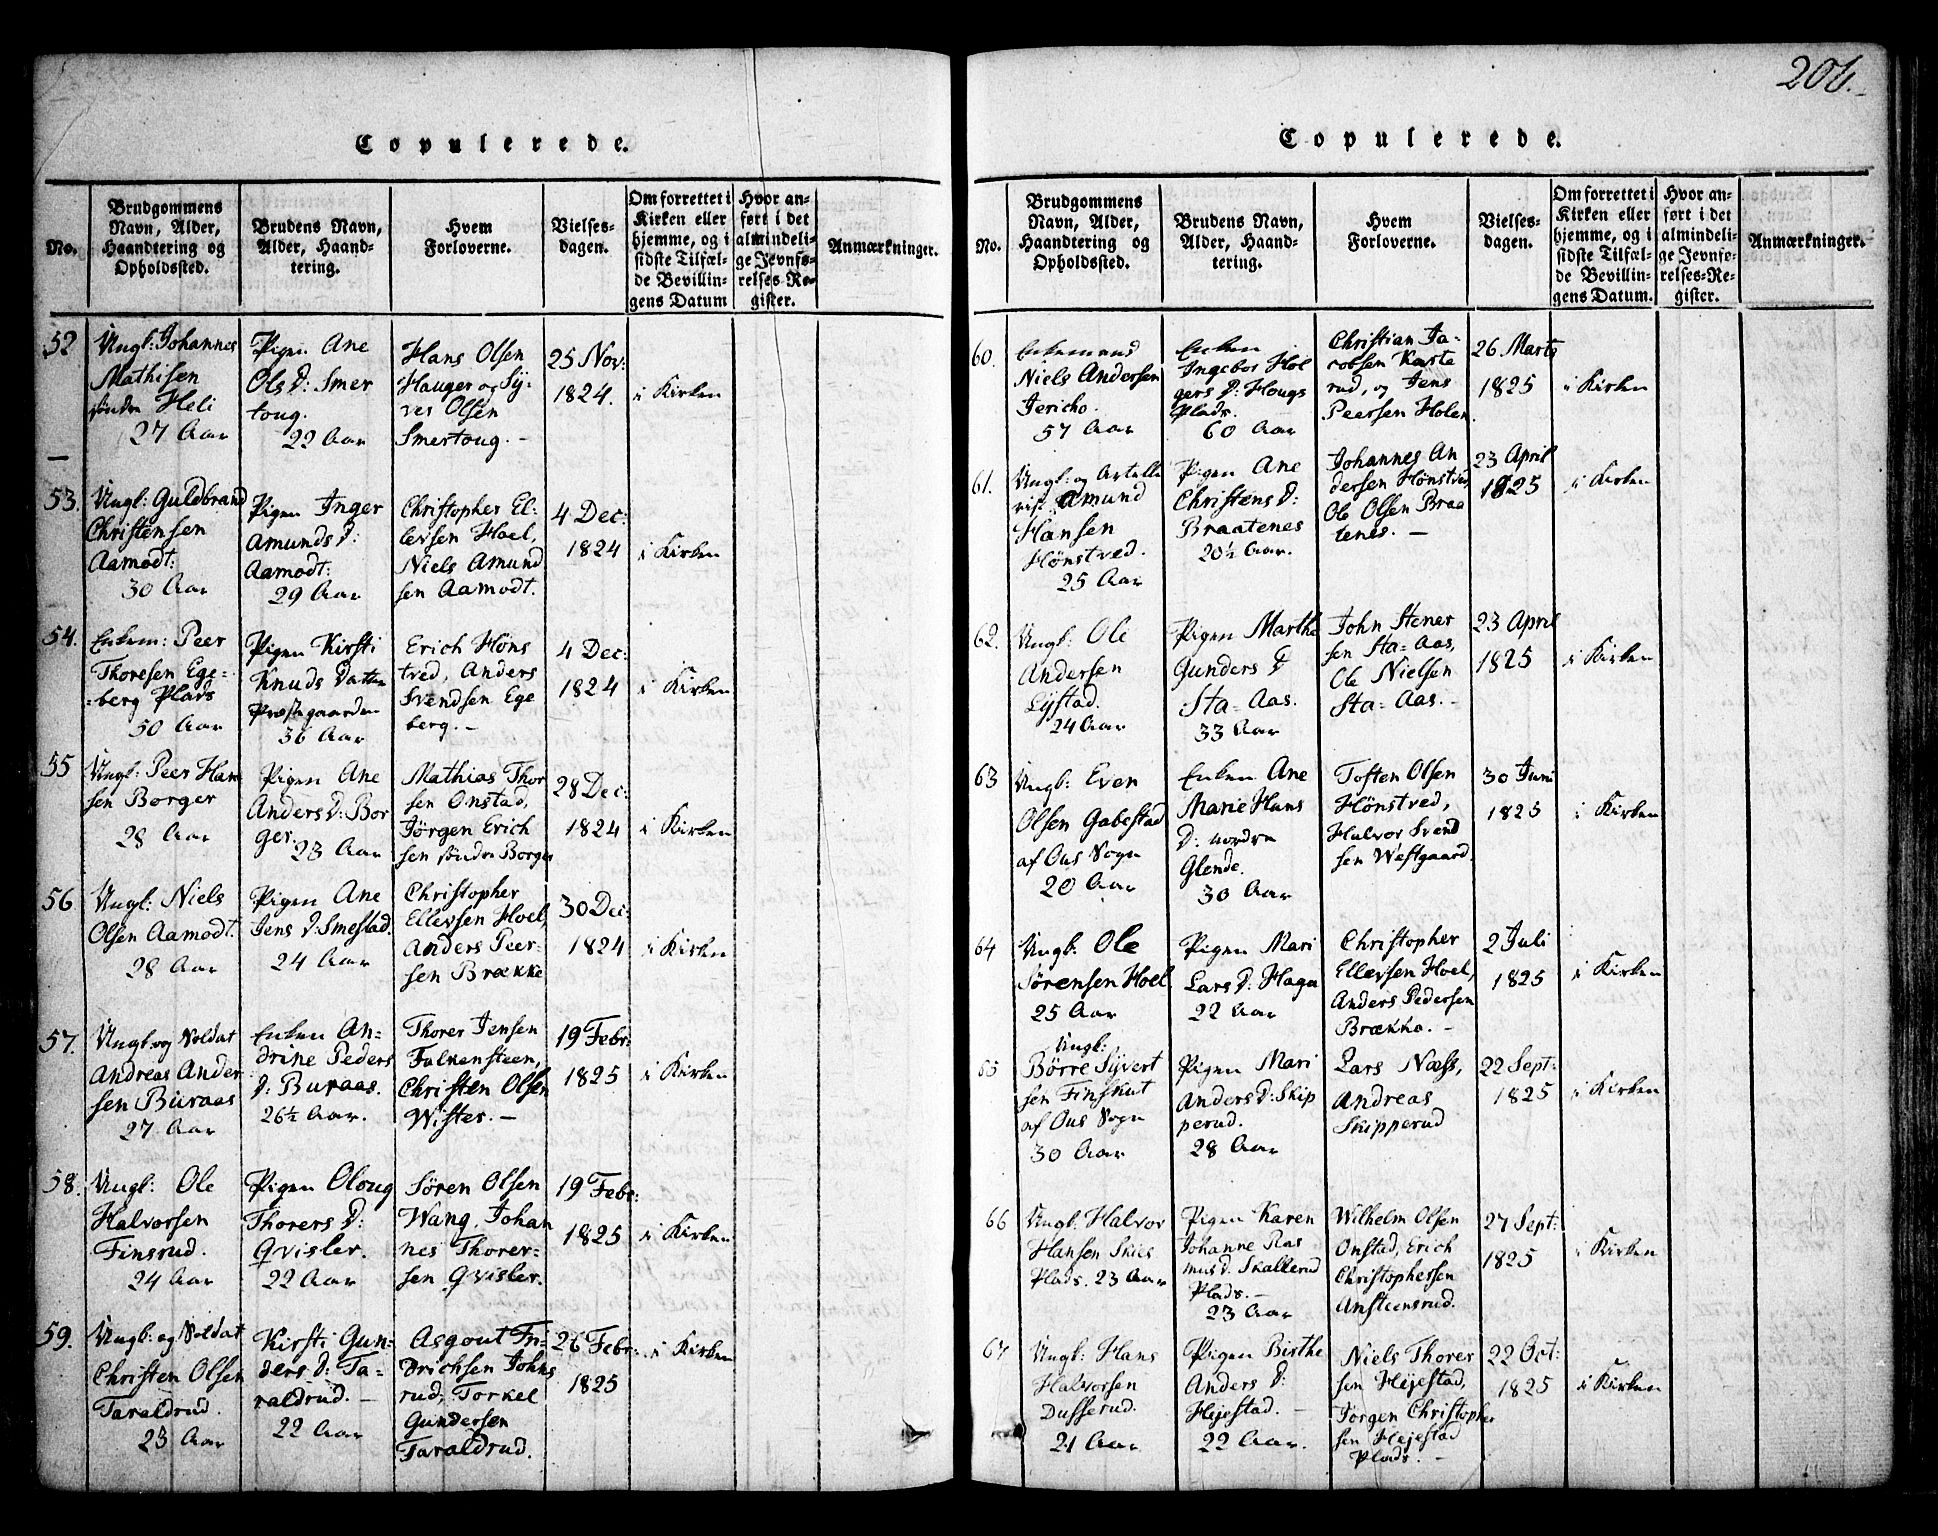 206.
Copulerede.
No.
Brudgommens
Navn, Alder,
Haandtering og
Opholdssted.
Brudens Navn,
Alder, Haand-
tering.
Hvem
Forloverne.
Vielses-
dagen.
Om forrettet i
Kirken eller
hjemme, og i
sidste Tilfæl-
de Bevillin-
gens Datum
Hvor an-
ført i det
almindeli-
ge Jevnfø-
relses-Re-
gister.
Anmærkninger.
52
Ungk: Johannes
Mathisen
søndre Heli
27 Aar
Pigen Ane
Ols D: Smer
toug.
22 Aar
Hans Olsen
Hauger og Sÿ-
ver Olsen
Smertoug. -
25 Nov:
1824.
i Kirken
53.
Ungk: Guldbrand
Christensen
Aamodt:
30 Aar
Pigen Inger
Amunds D:
Aamodt:
29 Aar
Christopher El-
levsen Hoel,
Niels Amund
sen Aamodt.
4 Dec:
1824
i Kirken
54.
Enkem: Peer
Thoresen Ege-
berg Plads
50 Aar
Pigen Kirsti
Knuds Datter
Præstegaarden
36 Aar
Erich Höns
tved, Anders
Svendsen Ege
berg. -
4 Dec:
1824
i Kirken
55
Ungk: Peer Han
sen Borger
28 Aar
Pigen Ane
Anders D: Bor
ger.
23 Aar
Mathias Thor
sen Onstad,
Jörgen Erich
sen søndre Borger
28 Dec:
1824
i Kirken
56
Ungk: Niels
Olsen Aamodt.
28 Aar
Pigen Ane
Jens D: Smestad.
24 Aar
Christopher
Ellevsen Hoel,
Anders Peer-
sen Brække
30 Dec:
1824
i Kirken
57.
Ungk: og Soldat
Andreas Ander
sen Buraas
27 Aar
Enken An-
drine Peders
D: Buraas.
26½ Aar.
Thorer Jensen
Falkensteen,
Christen Olsen
Wister. -
19 Febr:
1825
i Kirken
58.
Ungk: Ole
Halvorsen
Finsrud.
24 Aar
Pigen Oloug
Thorers D:
Qvisler.
22 Aar
Sören Olsen
Wang, Johan
nes Thorer-
sen Qvisler.
19 Febr:
1825
i Kirken
59.
Ungk: og Soldat
Christen Olsen
Taraldrud.
23 Aar
Kirsti Gun-
ders D: Ta-
raldrud. -
22 Aar
Asgout Fri-
drichsen Johns
rud, Torkel
Gundersen
Taraldrud.
26 Febr:
1825
i Kirken
Copulerede.
No.
Brudgommens
Navn, Alder,
Haandtering og
Opholdssted.
Brudens Navn,
Alder, Haand-
tering.
Hvem
Forloverne.
Vielses-
dagen.
Om forrettet i
Kirken eller
hjemme, og i
sidste Tilfæl-
de Bevillin-
gens Datum.
Hvor an-
ført i det
almindeli-
ge Jevnfø-
relses-Re-
gister.
Anmærkninger.
60.
Enkemand
Niels Andersen
Jericho.
57 Aar
Enken
Ingebor Hol
gers D: Hougs
Plads.
60 Aar
Christian Ja-
cobsen Karte
rud, og Jens
Peersen Holen
26 Marts
1825
i Kirken
61.
Ungk: og Artille
rist Amund
Hansen
Hönstved.
25 Aar
Pigen Ane
Christens D:
Braatenes
20½ Aar.
Johannes An
dersen Hönstved
Ole Olsen Braa
tenes. -
23 April
1825
i Kirken
62.
Ungk: Ole
Andersen
Lÿstad.
24 Aar
Pigen Marthe
Gunders D
Sta-Aas.
33 Aar
John Stener
sen Sta-Aas,
Ole Nielsen
Sta-Aas. -
23 April
1825
i Kirken
63
Ungk: Even
Olsen Gabestad
af Ous Sogn
20 Aar
Enken Ane
Marie Hans
D: nordre
Glende.
30 Aar
Toften Olsen
Hönstved,
Halvor Svend
sen Westgaard.
30 Juni
1825
i Kirken
64
Ungk: Ole
Sörensen Hoel
25 Aar
Pigen Mari
Lars D: Haga
22 Aar
Christopher
Ellevsen Hoel,
Anders Pedersen
Brække. -
2 Juli
1825
i Kirken
65
Ungk:
Börre Sÿvert
sen Finskut
af Ous Sogn
30 Aar
Pigen Mari
Anders D: Skip
perud.
28 Aar
Lars Næss,
Andreas
Skipperud
22 Sept:
1825
i Kirken
66
Ungk: Halvor
Hansen Skies
Plads. 23 Aar
Pigen Karen
Johanne Ras
mus D: Skallerud
Plads. -
23 Aar
Wilhelm Olsen
Onstad, Erich
Christophersen
Ansteensrud.
27 Sept:
1825
i Kirken
67
Ungk: Hans
Halvorsen
Dusserud.
21 Aar
Pigen Birthe
Anders D:
Hejestad. -
22 Aar.
Niels Thorer
sen Hejestad,
Jorgen Christopher
sen Hejestad
Plads. -
22 Oct:
1825
i Kirken